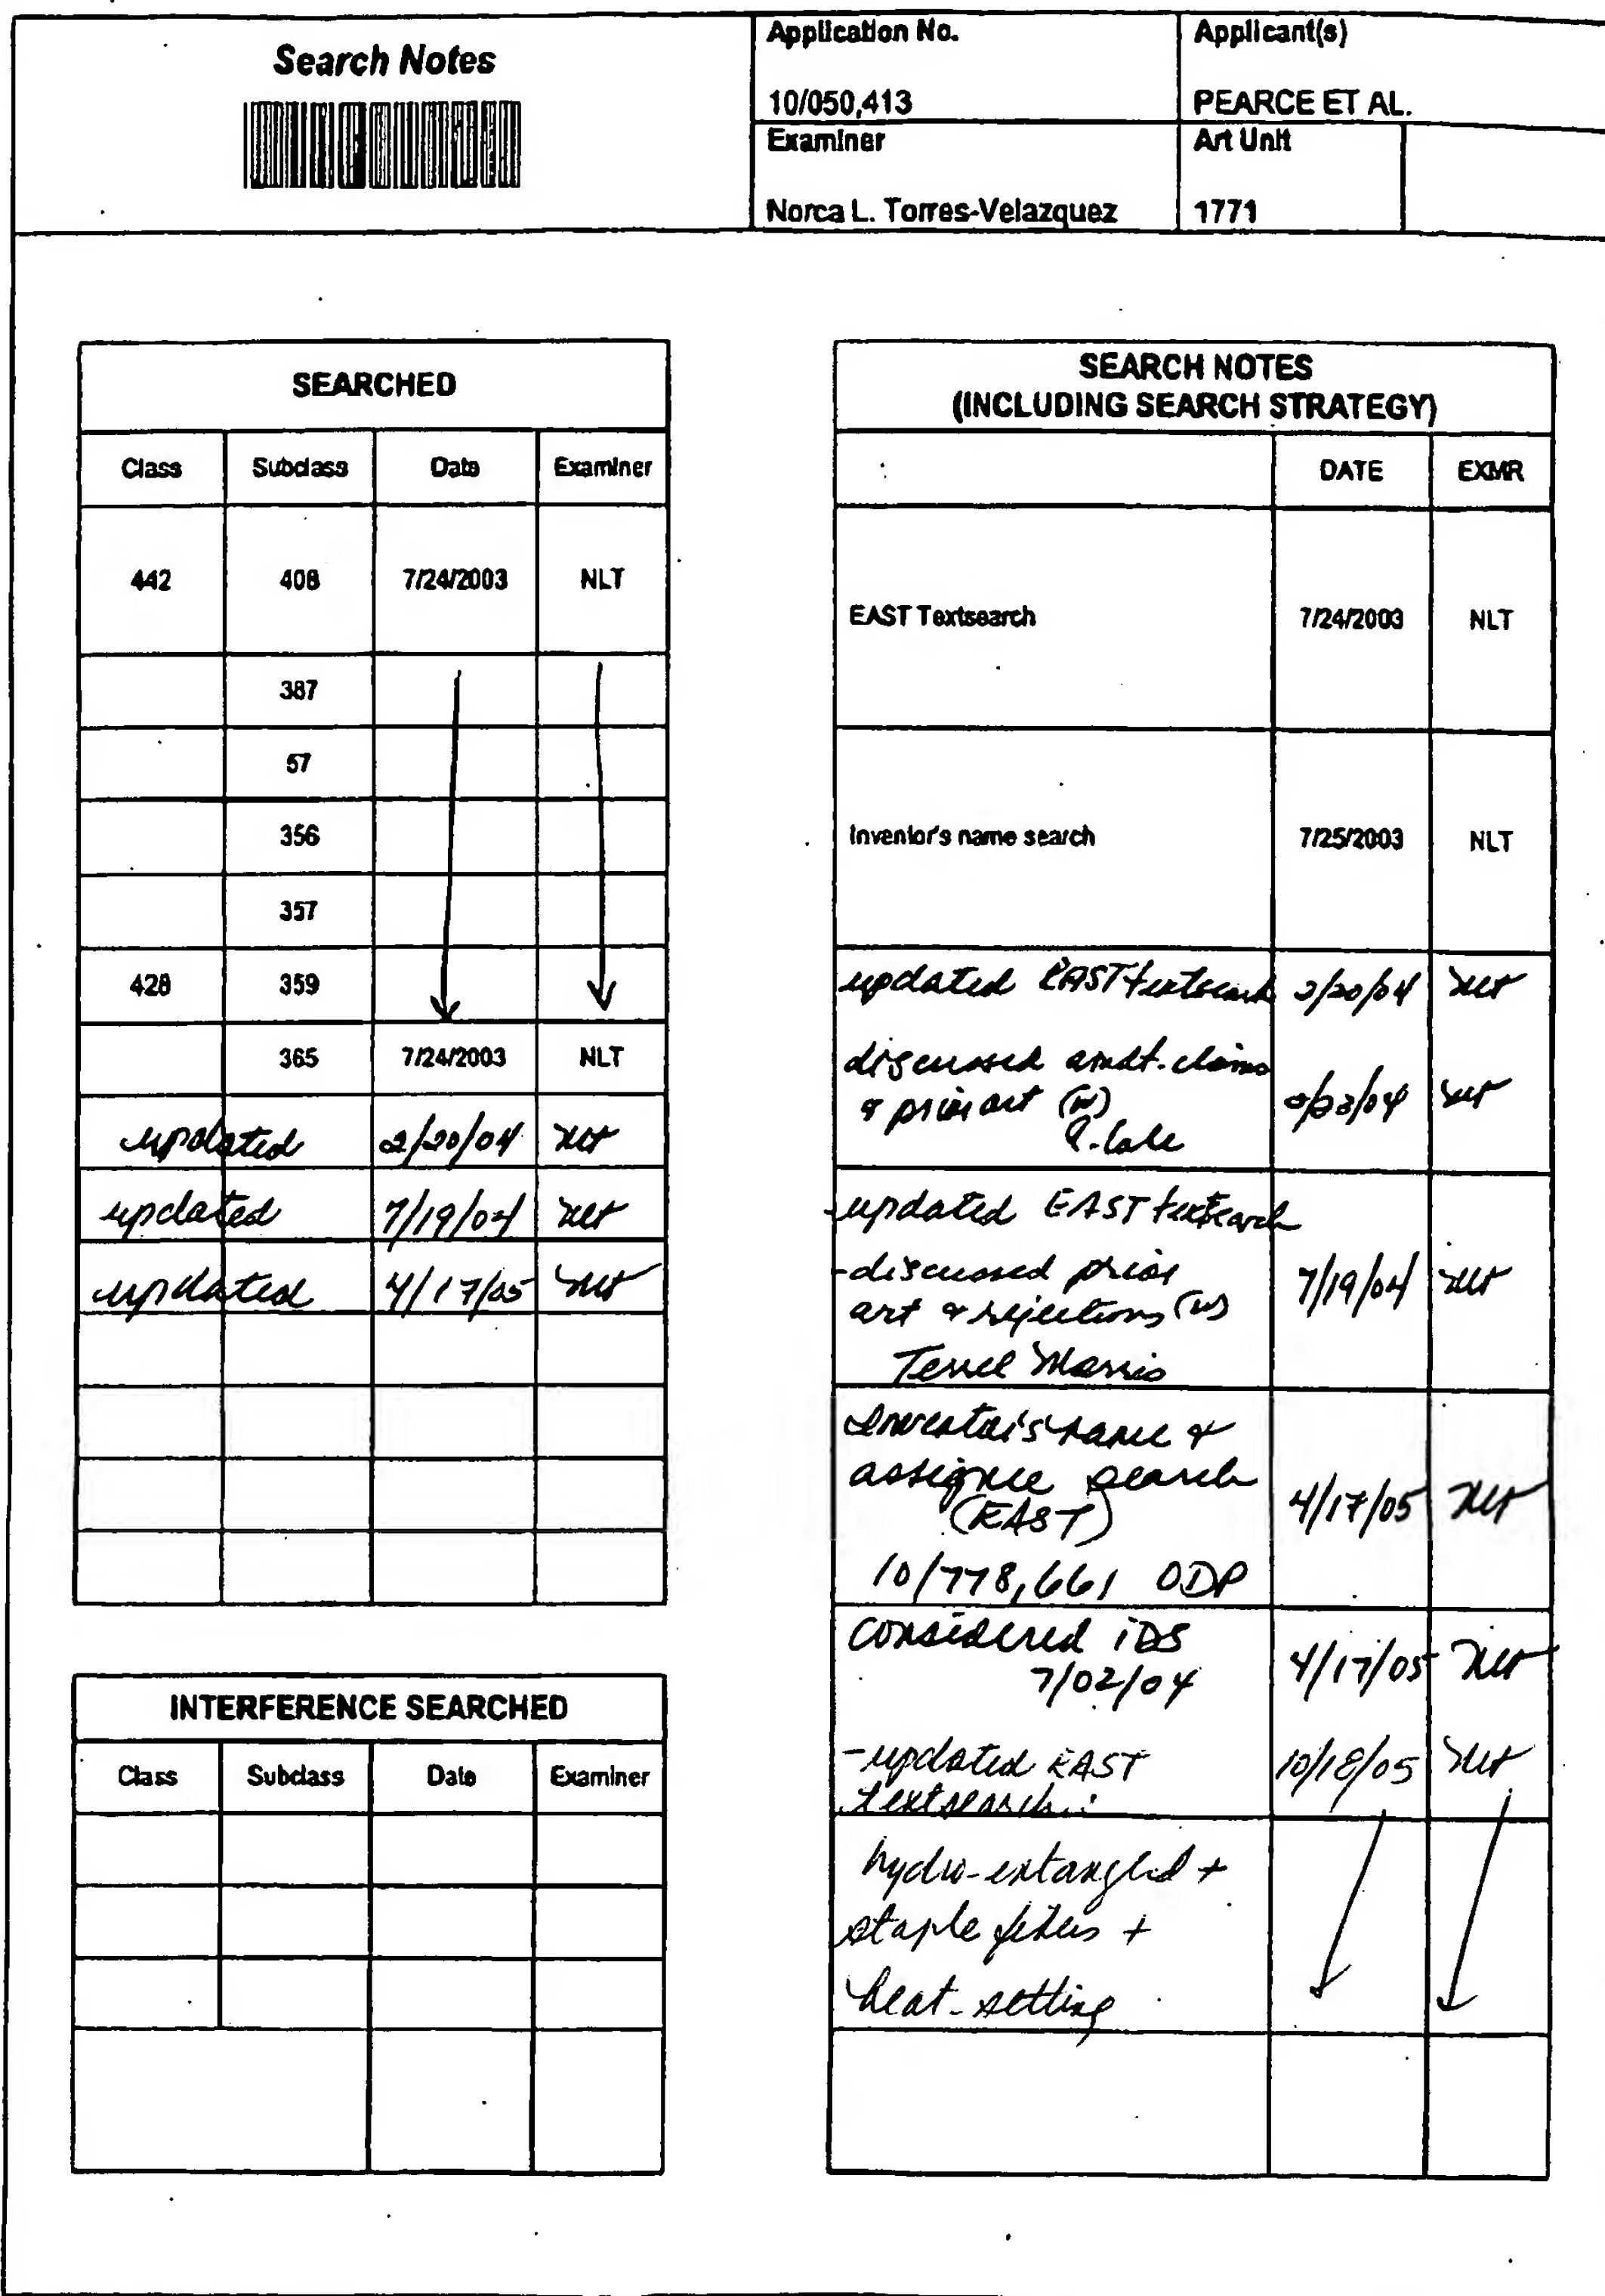 Search Notes
Application No.
Applicant(s)
10/050,413
PEARCE ET AL.
Examiner
Art Unit
Norca L. Torres-Velazquez
1771
SEARCHED
Class Subclass Date Examiner
442 408 7/24/2003 NLT
387
57
356
357
428 359
365 7/24/2003 NLT
updated 2/20/04 NLT
updated 7/19/04 NLT
updated 4/17/05 NLT
INTERFERENCE SEARCHED
Class Subclass Date Examiner
SEARCH NOTES
(INCLUDING SEARCH STRATEGY)
DATE EXMR
EAST Textsearch 7/24/2003 NLT
Inventor's name search 7/25/2003 NLT
updated EAST textsearch 2/20/04 NLT
discussed amdt. claims
& prior art (w) 2/23/04 NLT
-updated EAST textsearch
-discussed prior
art & rejections (w) 7/19/04 NLT
Terrel Morris
Inventor's name &
assignee search
(EAST) 4/17/05 NLT
10/778,661 ODP
Considered IDS 4/17/05 NLT
7/02/04
-updated EAST 10/18/05 NLT
textsearch:
hydro-entangled +
staple fibers +
heat-setting